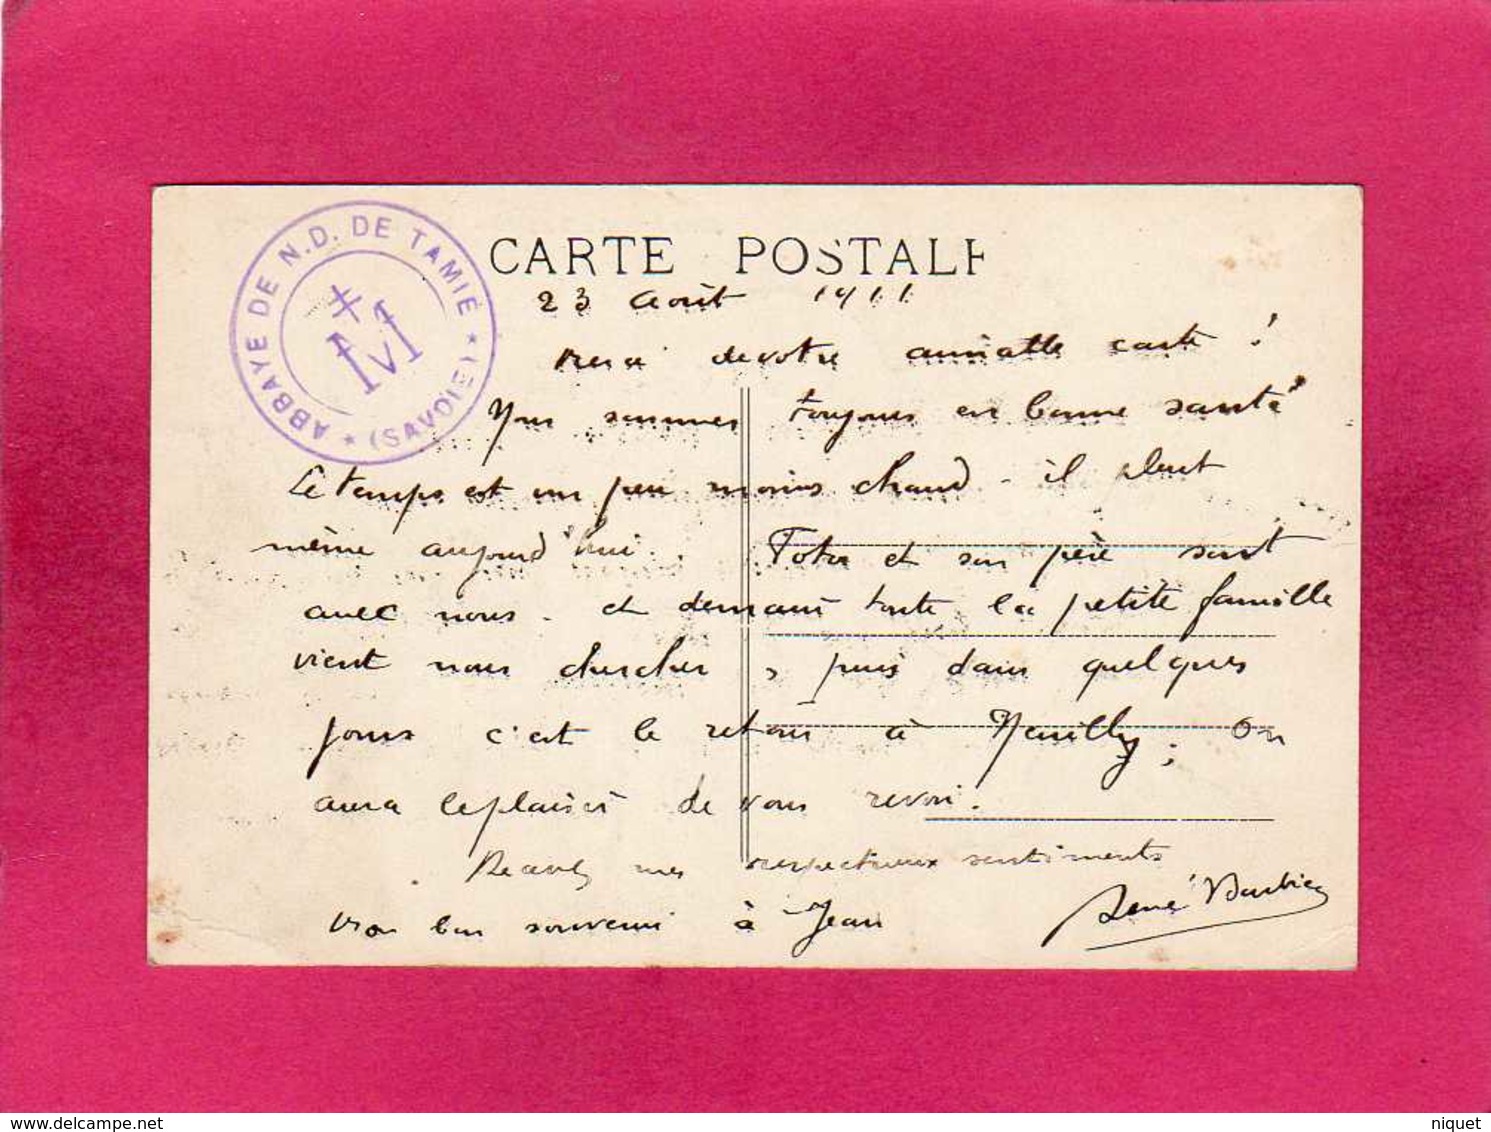 ABBAYE DE N.D. DE TAMIÉ * (SAVOIE) *
M
CARTE POSTALE
23 Août 1911
Merci de votre aimable carte !
Nous sommes toujours en bonne santé
Le temps est un peu moins chaud - il pleut
même aujourd'hui. Totor et son père sont
avec nous - et demain toute la petite famille
vient nous chercher, puis dans quelques
jours c'est le retour à Neuilly ; On
aura le plaisir de vous revoir.
Recevez mes respectueux sentiments
Mon bon souvenir à Jean
René Barbier
delcampe.net
niquet